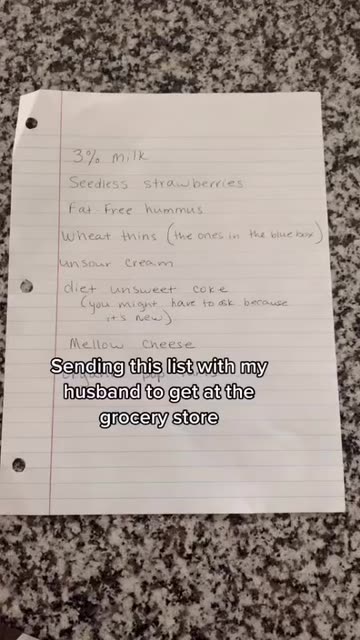 3% milk
Seedless strawberries
Fat Free hummus
wheat thins (the ones in the blue box)
unsour cream
diet unsweet coke
(you might have to ask because
it's new)
Mellow cheese
Sending this list with my
husband to get at the
grocery store